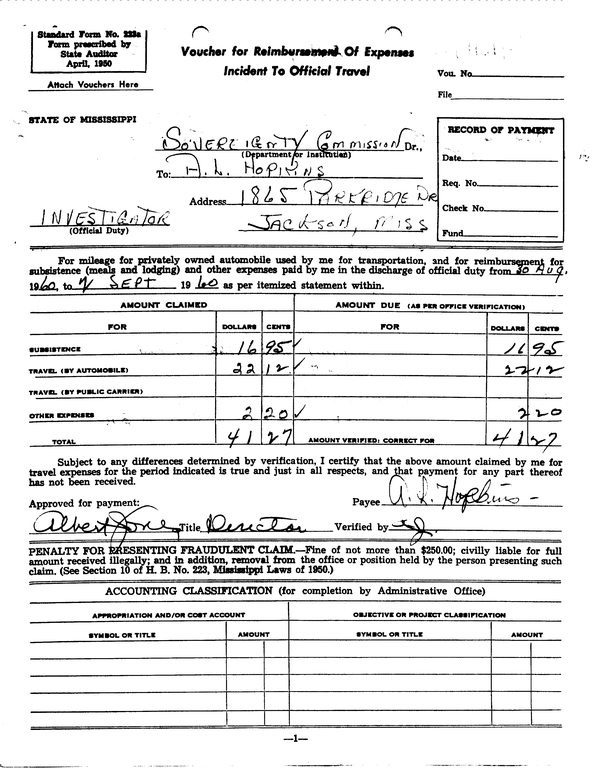 Standard Form No. 223a
Form prescribed by
State Auditor
April, 1950
Attach Vouchers Here
Voucher for Reimbursement Of Expenses
Incident To Official Travel
Vou. No.
File
STATE OF MISSISSIPPI
SOVEREIGNTY COMMISSION Dr.,
(Department or Institution)
To: A. L. HOPKINS
Address 1865 PARKRIDGE DR
INVESTIGATOR JACKSON, MISS
(Official Duty)
RECORD OF PAYMENT
Date
Req. No.
Check No.
Fund
For mileage for privately owned automobile used by me for transportation, and for reimbursement for
subsistence (meals and lodging) and other expenses paid by me in the discharge of official duty from 30 Aug,
1960, to SEPT 1960 as per itemized statement within.
AMOUNT CLAIMED AMOUNT DUE (AS PER OFFICE VERIFICATION)
FOR DOLLARS CENTS FOR DOLLARS CENTS
SUBSISTENCE 16 95 ✓ 16 95
TRAVEL (BY AUTOMOBILE) 22 12 ✓ 22 12
TRAVEL (BY PUBLIC CARRIER)
OTHER EXPENSES 2 20 ✓ 2 20
TOTAL 41 27 AMOUNT VERIFIED: CORRECT FOR 41 27
Subject to any differences determined by verification, I certify that the above amount claimed by me for
travel expenses for the period indicated is true and just in all respects, and that payment for any part thereof
has not been received.
Approved for payment: Payee A. L. Hopkins
Albert Jones Title Director Verified by
PENALTY FOR PRESENTING FRAUDULENT CLAIM.—Fine of not more than $250.00; civilly liable for full
amount received illegally; and in addition, removal from the office or position held by the person presenting such
claim. (See Section 10 of H. B. No. 223, Mississippi Laws of 1950.)
ACCOUNTING CLASSIFICATION (for completion by Administrative Office)
APPROPRIATION AND/OR COST ACCOUNT OBJECTIVE OR PROJECT CLASSIFICATION
SYMBOL OR TITLE AMOUNT SYMBOL OR TITLE AMOUNT
—1—